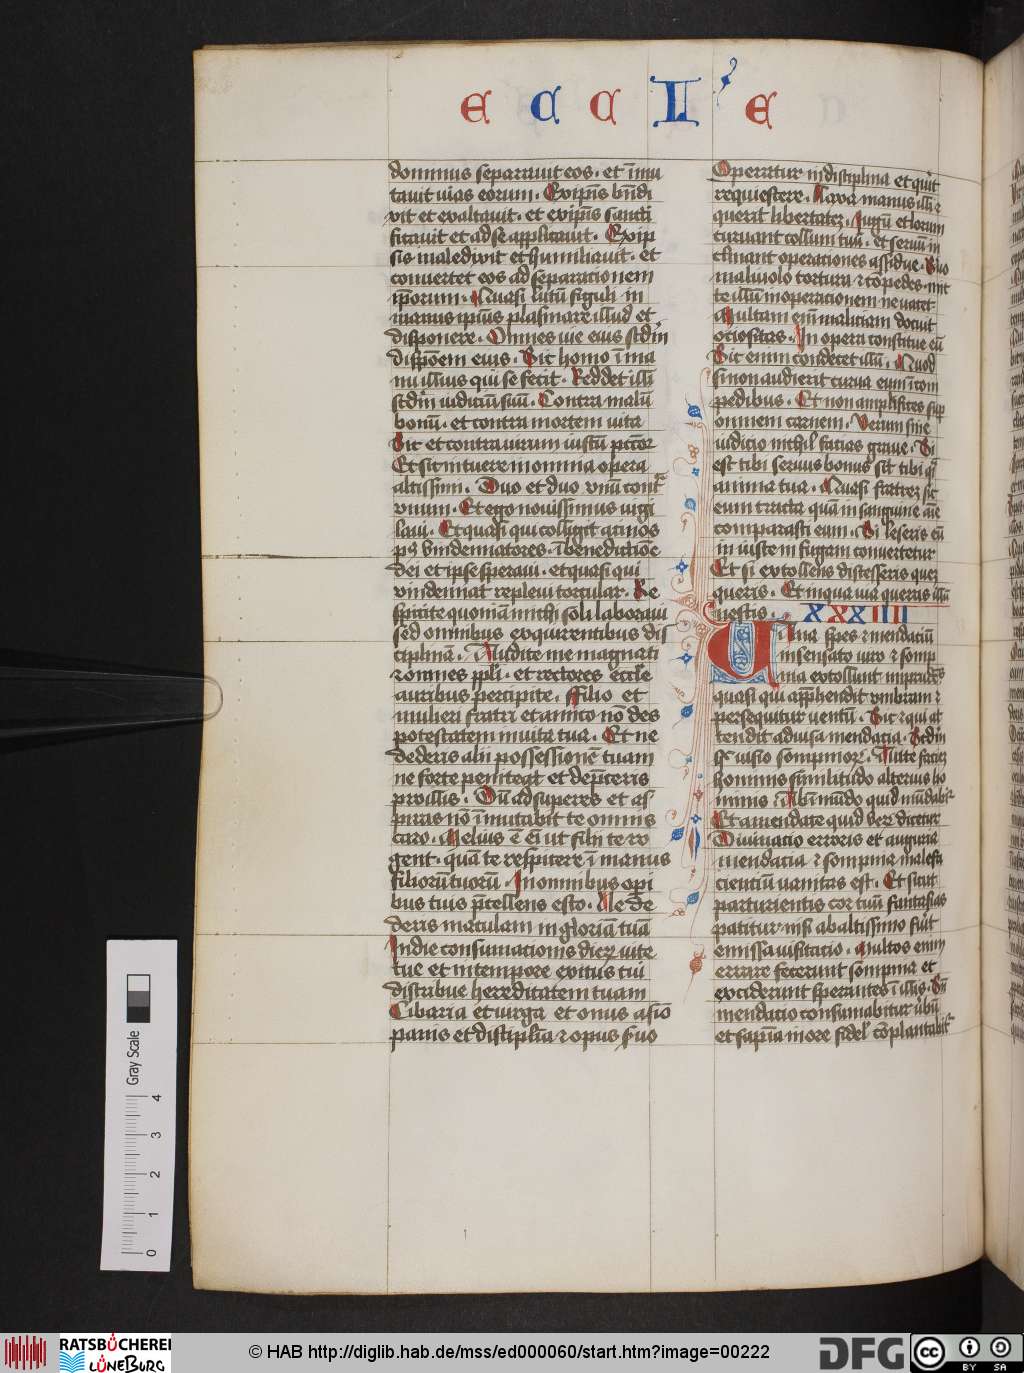 E C C L E
dominus separauit eos · et īmu
tauit uias eorum · Ex ip̄is bn̄di
xit et exaltauit · et ex ip̄is sancti
ficauit et ad se applicauit · Ex ip
sis maledixit et humiliauit · et
conuertet eos ad separacionem
ip̄orum · Quasi lutū figuli in
manus ipius plasmare illud et
disponere · Omnes uie eius scd̄m
disp̄oem eius · Sic homo ī ma
nu illius qui se fecit · Reddet illi
scd̄m iudiciū suū · Contra malū
bonū · et contra mortem uita
Sic et contra uirum iustū pctōr
Et sic intuere in omnia opera
altissimi · Duo et duo vnū contra
vnum · Et ego nouissimus uigi
laui · Et quasi qui colligit acinos
pꝰ vindemiatores · ī benedictiōe
dei et ipse speraui · et quasi qui
vindemiat repleui torcular · Re
spicite quoniā michi soli laboraui
sed omnibus exquirentibus dis
ciplinā · Audite me magnati
⁊ omnes ppl̄i · et rectores eccl̄e
auribus percipite · Filio et
mulieri fratri et amico nō des
potestatem in uita tua · Et ne
dederis alii possessionē tuam
ne forte peniteat et dep̄ceris
pro illis · Dū ad superes et as
piras nō īmutabit te omnis
caro · Melius ē eī ut filii te ro
gent · quā te respicere ī manus
filiorū tuorū · In omnibus op̄i
bus tuis p̄cellens esto · Ne de
deris maculam in gloriā tuā
In die consumacionis dierꝝ uite
tue et in tempore exitus tui
distribue hereditatem tuam
Cibaria et uirga et onus asīo
panis et disciplīa ⁊ opus s̄uo
Operatur in disciplina et querit
requiescere · Laxa manus illi ⁊
querit libertatē · Jugū et lorum
curuant collum tuū · et seruū in
clinant operationes assidue · Suo
maliuolo tortura ⁊ compedes · mit
te illū in operacionem ne uacet ·
Multam enī maliciam docuit
ociositas · In opera constitue eū
Sic enim condecet illū · Quod
si non audierit curua eum ī com
pedibus · Et non amplifices sup
omnem carnem · Verum sine
iudicio nichil facias graue · Si
est tibi seruus bonus sit tibi qͥ
anima tua · Quasi fratrez sic
eum tracta quā in sanguine aīe
comparasti eum · Si leseris eū
in iuste in fugam conuertetur
Et si extollens discesseris quez
queris · Et in qua uia queras illū
nescis · XXXIIII
Uana spes ⁊ mendaciū
insensato uiro ⁊ somp
nia extollunt imprudēs
quasi qui app̄hendit vmbram ⁊
persequitur uentū · Sic ⁊ qui at
tendit ad uisa mendacia · Scd̄m
hͦ uisio sompniorꝝ · Ante faciez
hominis similitudo alterius ho
minis · Ab īmūdo quid mūdabiť
Et a mendace quid verꝝ dicetur
Diuinacio erroris et auguria
mendacia ⁊ sompnia malefa
cienciū uanitas est · Et sicut
parturientis cor tuū fantasias
patitur · nisi ab altissimo fūit
emissa uisitacio · Multos enim
errare fecerunt sompnia et
exciderunt sperantes ī illis · Sn̄
mendacio consumabitur ūbū
et sapīa in ore fidel̄ cōplanabiť
Gray Scale
0 1 2 3 4
RATSBÜCHEREI
LÜNEBURG
© HAB http://diglib.hab.de/mss/ed000060/start.htm?image=00222
DFG
cc BY SA